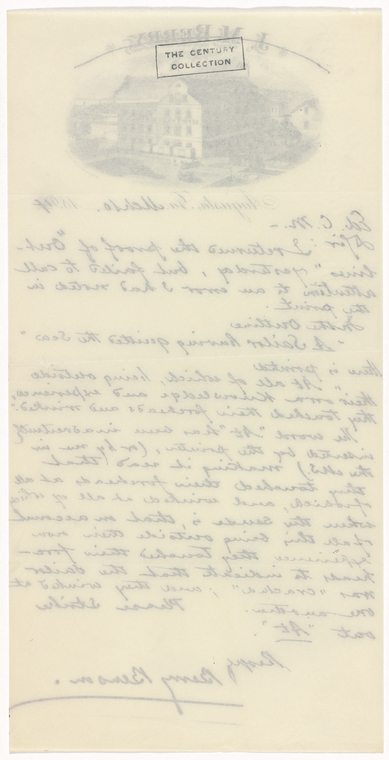 THE CENTURY
COLLECTION
J. M. BERRY
Augusta, Ga. Mch 10. 1894
Ed. C. M. –
Sir: I returned the proof of "Out-
lines" yesterday, but failed to call
attention to an error I had noted in
the print.
In the Outline
"A Sailor having quitted the Sea"
this is printed
"At all of which, being outside
their own knowledge and experience,
they touched their foreheads and winked."
The word "At" has been inadvertently
inserted by the printer, (or by me in
the MS) making it read that
they touched their foreheads at all
of which, and winked at all of which
when the sense is, that on account
of all this being outside their own
experience they touched their fore-
heads to indicate that the Sailor
was "cracked"; and they winked at
one another. Please strike
out "At".
Respy,
Berry Benson.